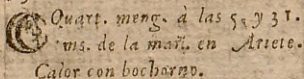 Quart. meng. à las 5. y 31.
ms. de la mañ. en Ariete.
Calor con bochorno.